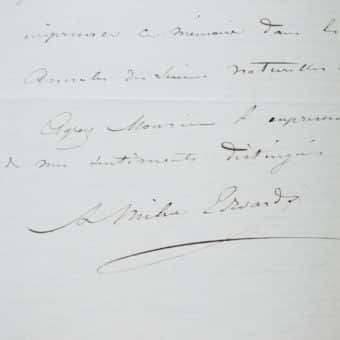 imprimer ce mémoire dans les
Annales des Sciences naturelles
Agréez Monsieur l'expression
de mes sentiments distingués
A Milne Edwards